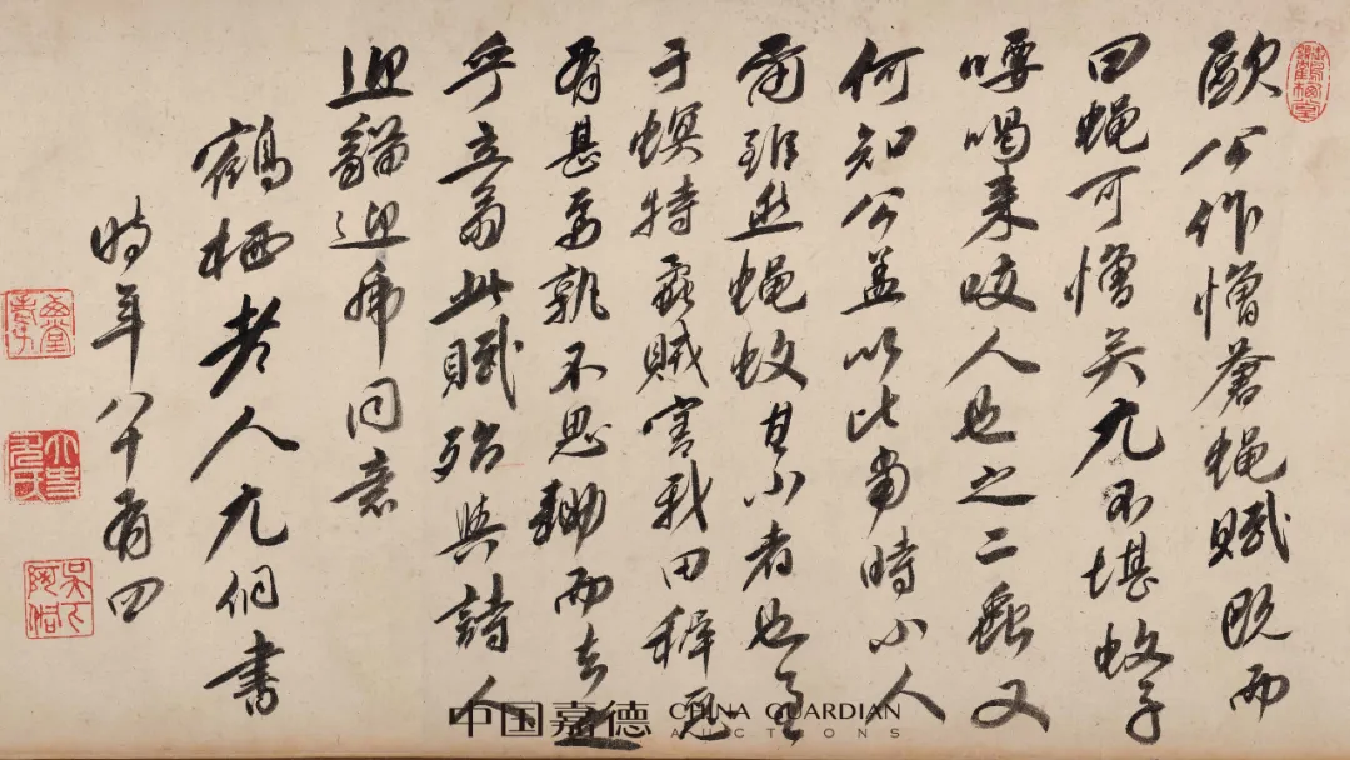 歐公作憎蒼蠅賦既而
曰蠅可憎矣尤不堪蚊子
喓喝来咬人也之二蟲又
何知公盖以比當時小人
爾雖然蠅蚊其小者也至
于螟特蟊賊害我田穉
有甚焉孰不思鋤而去之
乎立翁此賦殆與詩人
迎貓迎虎同意
鶴栖老人尤侗書
時年八十有四
中国嘉德 CHINA GUARDIAN
AUCTIONS